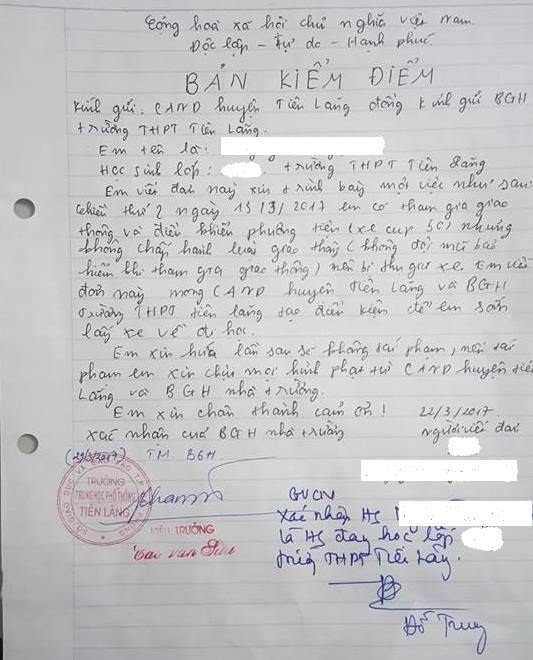 Cộng hoà xã hội chủ nghĩa việt Nam.
Độc lập - Tự do - Hạnh phúc.
BẢN KIỂM ĐIỂM
Kính gửi: CAND huyện Tiên Lãng đồng kính gửi BGH
trường THPT Tiên Lãng.
Em tên là:
Học sinh lớp: , trường THPT Tiên Lãng
Em viết đơn này xin trình bày một việc như sau:
chiều thứ 2 ngày 13/3/2017 em có tham gia giao
thông và điều khiển phương tiện (xe cup 50) nhưng
không chấp hành luật giao thông (không đội mũ bảo
hiểm khi tham gia giao thông) nên bị thu giữ xe. Em viết
đơn này mong CAND huyện Tiên Lãng và BGH
trường THPT tiên lãng tạo điều kiện để em sớm
lấy xe về đi học.
Em xin hứa lần sau sẽ không tái phạm, nếu tái
phạm em xin chịu mọi hình phạt từ CAND huyện tiên
Lãng và BGH nhà trường.
Em xin chân thành cảm ơn! 22/3/2017.
xác nhận của BGH nhà trường người viết đơn
(22/3/2017) TM. BGH
SỞ GIÁO DỤC VÀ ĐÀO TẠO T.P
TRƯỜNG
TRUNG HỌC PHỔ THÔNG
TIÊN LÃNG
HIỆU TRƯỞNG
GVCN
Xác nhận HS
là HS đang học lớp
trường THPT Tiên Lãng.
Đỗ Trung